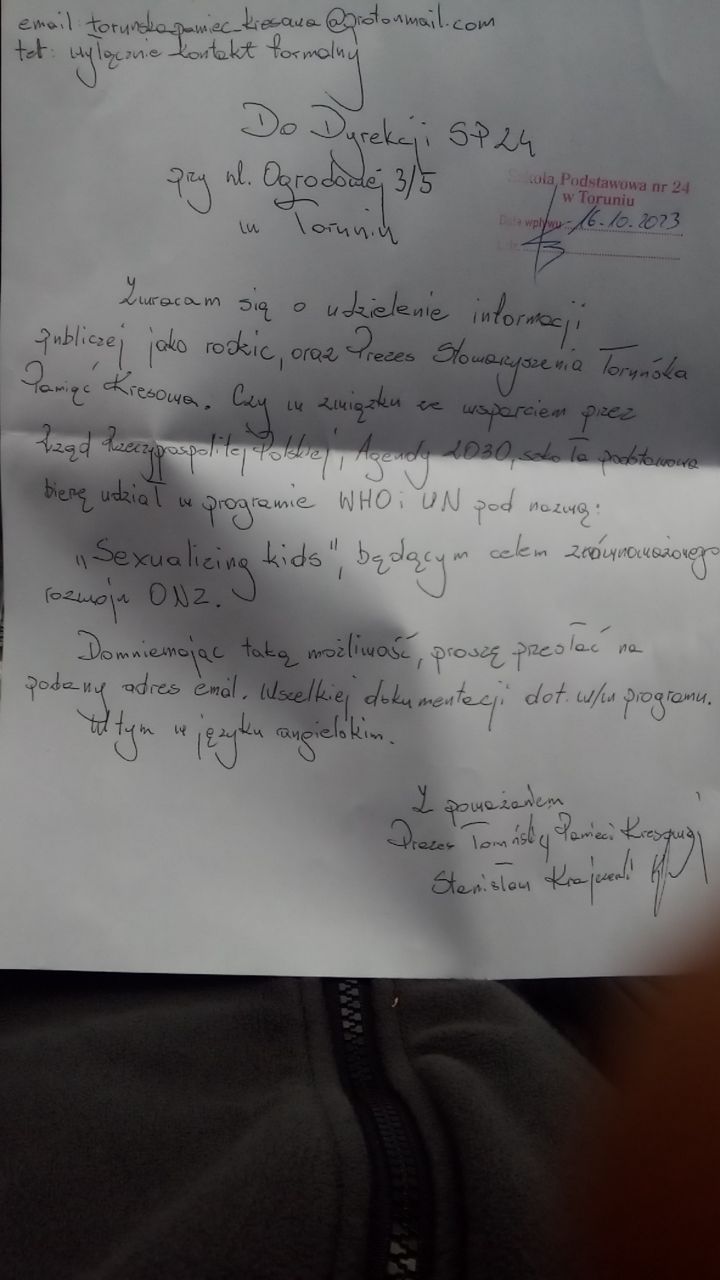 email: toruńska_pamiec_kresowa@protonmail.com
tel: wyłącznie kontakt formalny
Do Dyrekcji SP24
przy ul. Ogrodowej 3/5
w Toruniu
Szkoła Podstawowa nr 24
w Toruniu
Data wpływu 16.10.2023
Zwracam się o udzielenie informacji
publiczej jako rodzic, oraz Prezes Stowaryszenia Toruńska
Pamięć Kresowa. Czy w związku ze wsparciem przez
Rząd Rzeczypospolitej Polskiej, Agendy 2030, szkoła podstawowa
bierze udział w programie WHO i UN pod nazwą:
"Sexualizing kids", będącym celem zrównoważonego
rozwoju ONZ.
Domniemając taką możliwość, proszę przesłać na
podany adres emil. Wszelkiej dokumentacji dot. w/w programu.
W tym w języku angielskim.
Z poważaniem
Prezes Toruńskiej Pamięci Kresowej
Stanisław Krajewski